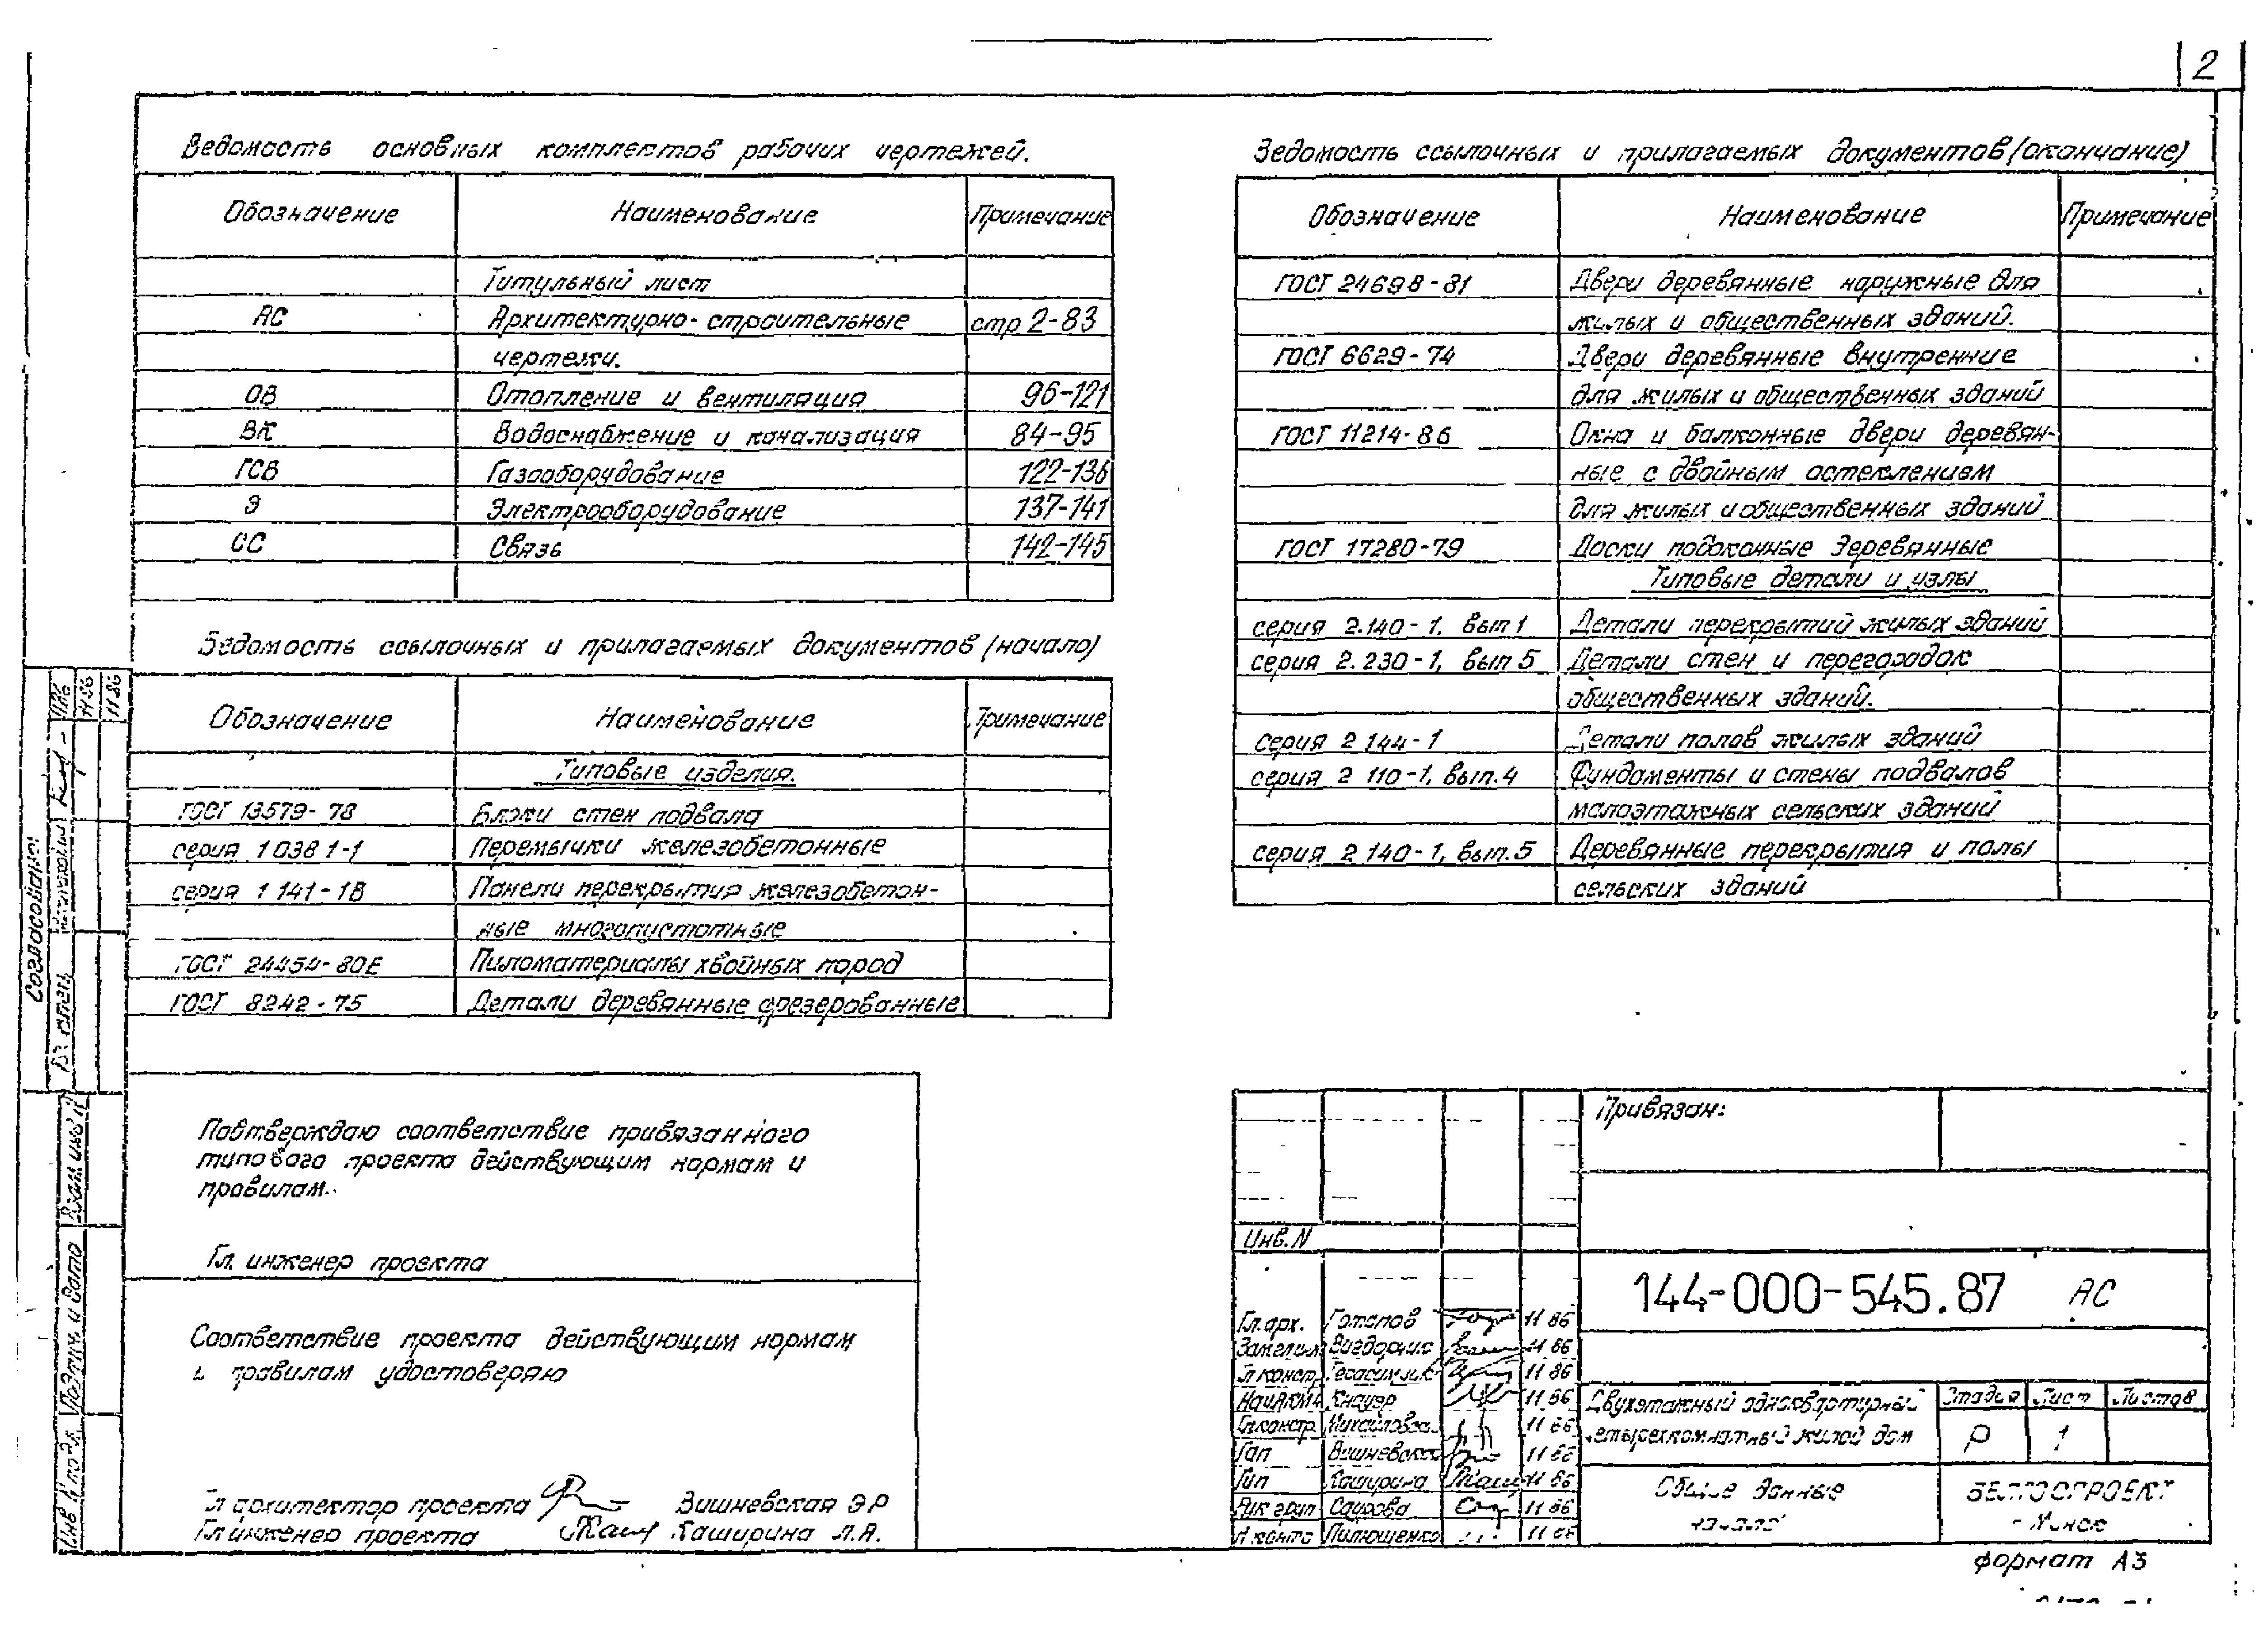 2
Ведомость основных комплектов рабочих чертежей.
Обозначение Наименование Примечание
Титульный лист
АС Архитектурно-строительные стр 2-83
чертежи.
ОВ Отопление и вентиляция 96-121
ВК Водоснабжение и канализация 84-95
ГСВ Газооборудование 122-136
Э Электрооборудование 137-141
СС Связь 142-145
Ведомость ссылочных и прилагаемых документов (начало)
Обозначение Наименование Примечание
Типовые изделия.
ГОСТ 13579-78 Блоки стен подвала
серия 1 038 1-1 Перемычки железобетонные
серия 1 141-1В Панели перекрытия железобетон-
ные многопустотные
ГОСТ 24454-80Е Пиломатериалы хвойных пород
ГОСТ 8242-75 Детали деревянные фрезерованные
Ведомость ссылочных и прилагаемых документов (окончание)
Обозначение Наименование Примечание
ГОСТ 24698-81 Двери деревянные наружные для
жилых и общественных зданий.
ГОСТ 6629-74 Двери деревянные внутренние
для жилых и общественных зданий
ГОСТ 11214-86 Окна и балконные двери деревян-
ные с двойным остеклением
для жилых и общественных зданий
ГОСТ 17280-79 Доски подоконные деревянные
Типовые детали и узлы
серия 2.140-1, вып 1 Детали перекрытий жилых зданий
серия 2.230-1, вып 5 Детали стен и перегородок
общественных зданий.
серия 2 144-1 Детали полов жилых зданий
серия 2 110-1, вып.4 Фундаменты и стены подвалов
малоэтажных сельских зданий
серия 2 140-1, вып.5 Деревянные перекрытия и полы
сельских зданий
Подтверждаю соответствие привязанного
типового проекта действующим нормам и
правилам.
Гл. инженер проекта
Соответствие проекта действующим нормам
и правилам удостоверяю
Гл архитектор проекта Вишневская Э Р
Гл инженер проекта Каширина Л.А.
Согласовано:
11 86
11 86
Взам инв N
Подпись и дата
Инв N подл.
Привязан:
Инв. N
144-000-545.87 АС
Гл. арх. 11 86
11 86
Гл констр 11 86
Кнауэр 11 86
Гл констр 11 86
Гап Вишневская 11 86
Гип Каширина 11 86
Рук груп 11 86
Н контр 11 86
Двухэтажный одноквартирный
четырехкомнатный жилой дом
Стадия Лист Листов
Р 1
Общие данные
начало
БЕЛГОСПРОЕКТ
г Минск
формат А3